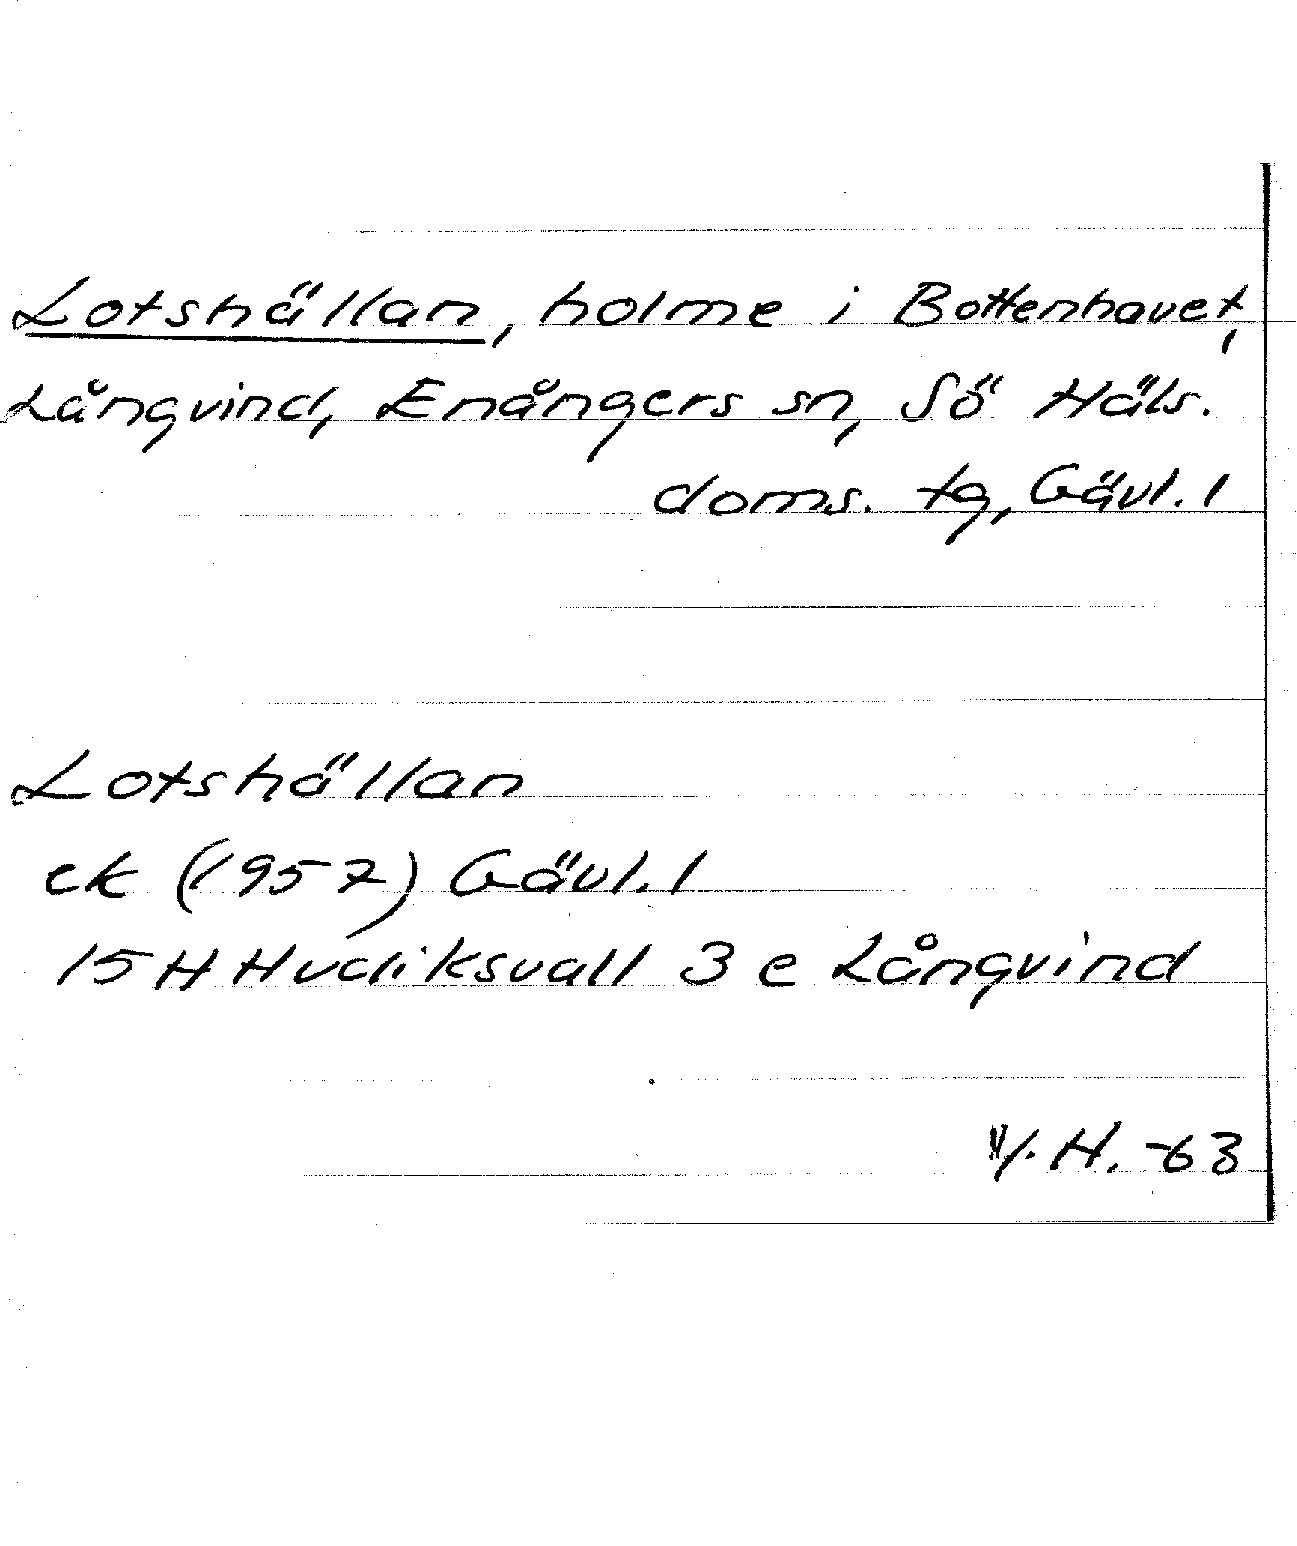 Lotshällan, holme i Bottenhavet,
Långvind, Enångers sn, Sö Häls.
doms. tg, Gävl. l
Lotshällan
ek (1957) Gävl. l
15 H Hudiksvall 3 e Långvind
H. -63